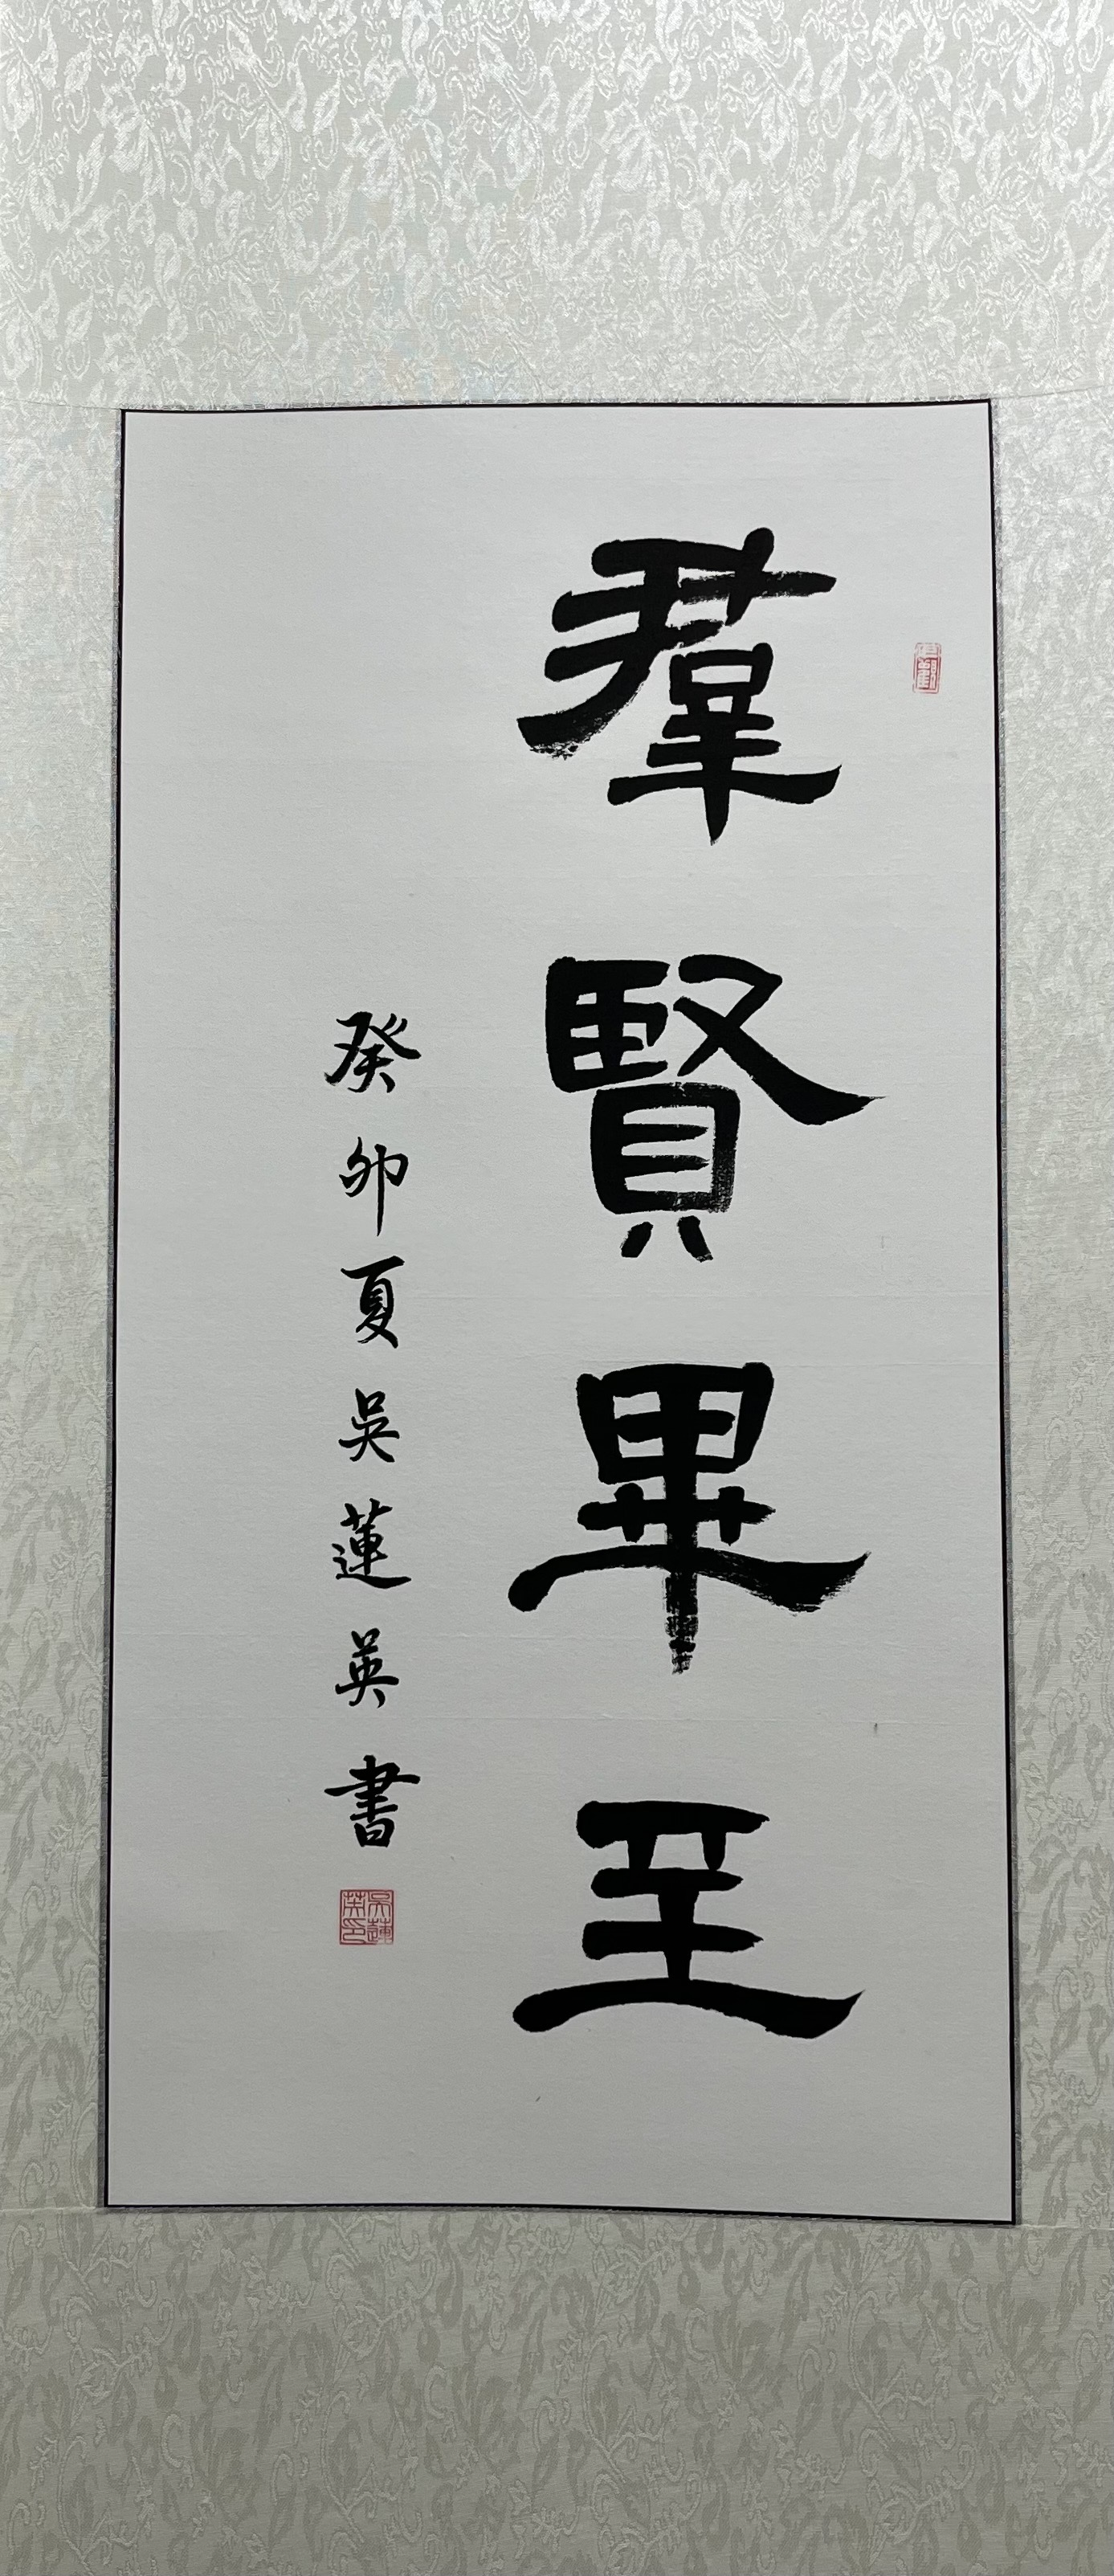 羣賢畢至
癸卯夏吳蓮英書
吳蓮英印